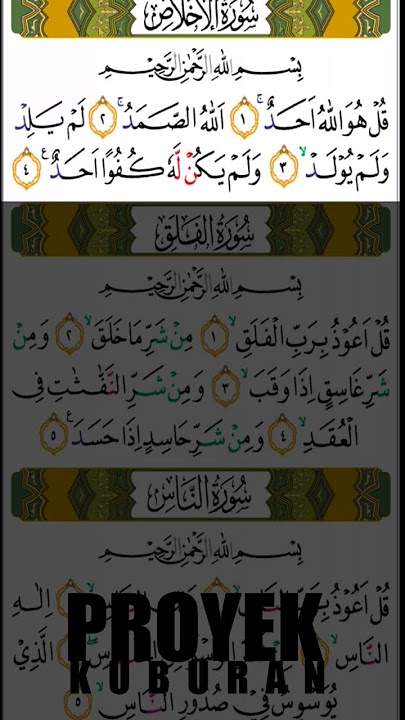 سُوْرَةُ الْاِخْلَاصِ
بِسْمِ اللّٰهِ الرَّحْمٰنِ الرَّحِيْمِ
قُلْ هُوَ اللّٰهُ اَحَدٌۚ ۝١ اَللّٰهُ الصَّمَدُۚ ۝٢ لَمْ يَلِدْ
وَلَمْ يُوْلَدْۙ ۝٣ وَلَمْ يَكُنْ لَّهٗ كُفُوًا اَحَدٌࣖ ۝٤
سُوْرَةُ الْفَلَقِ
بِسْمِ اللّٰهِ الرَّحْمٰنِ الرَّحِيْمِ
قُلْ اَعُوْذُ بِرَبِّ الْفَلَقِۙ ۝١ مِنْ شَرِّ مَا خَلَقَۙ ۝٢ وَمِنْ
شَرِّ غَاسِقٍ اِذَا وَقَبَۙ ۝٣ وَمِنْ شَرِّ النَّفّٰثٰتِ فِى
الْعُقَدِۙ ۝٤ وَمِنْ شَرِّ حَاسِدٍ اِذَا حَسَدَࣖ ۝٥
سُوْرَةُ النَّاسِ
بِسْمِ اللّٰهِ الرَّحْمٰنِ الرَّحِيْمِ
قُلْ اَعُوْذُ اِلٰهِ
النَّاسِۙ الَّذِيْ
PROYEK
KUBURAN
يُوَسْوِسُ فِيْ صُدُوْرِ النَّاسِۙ ۝٥